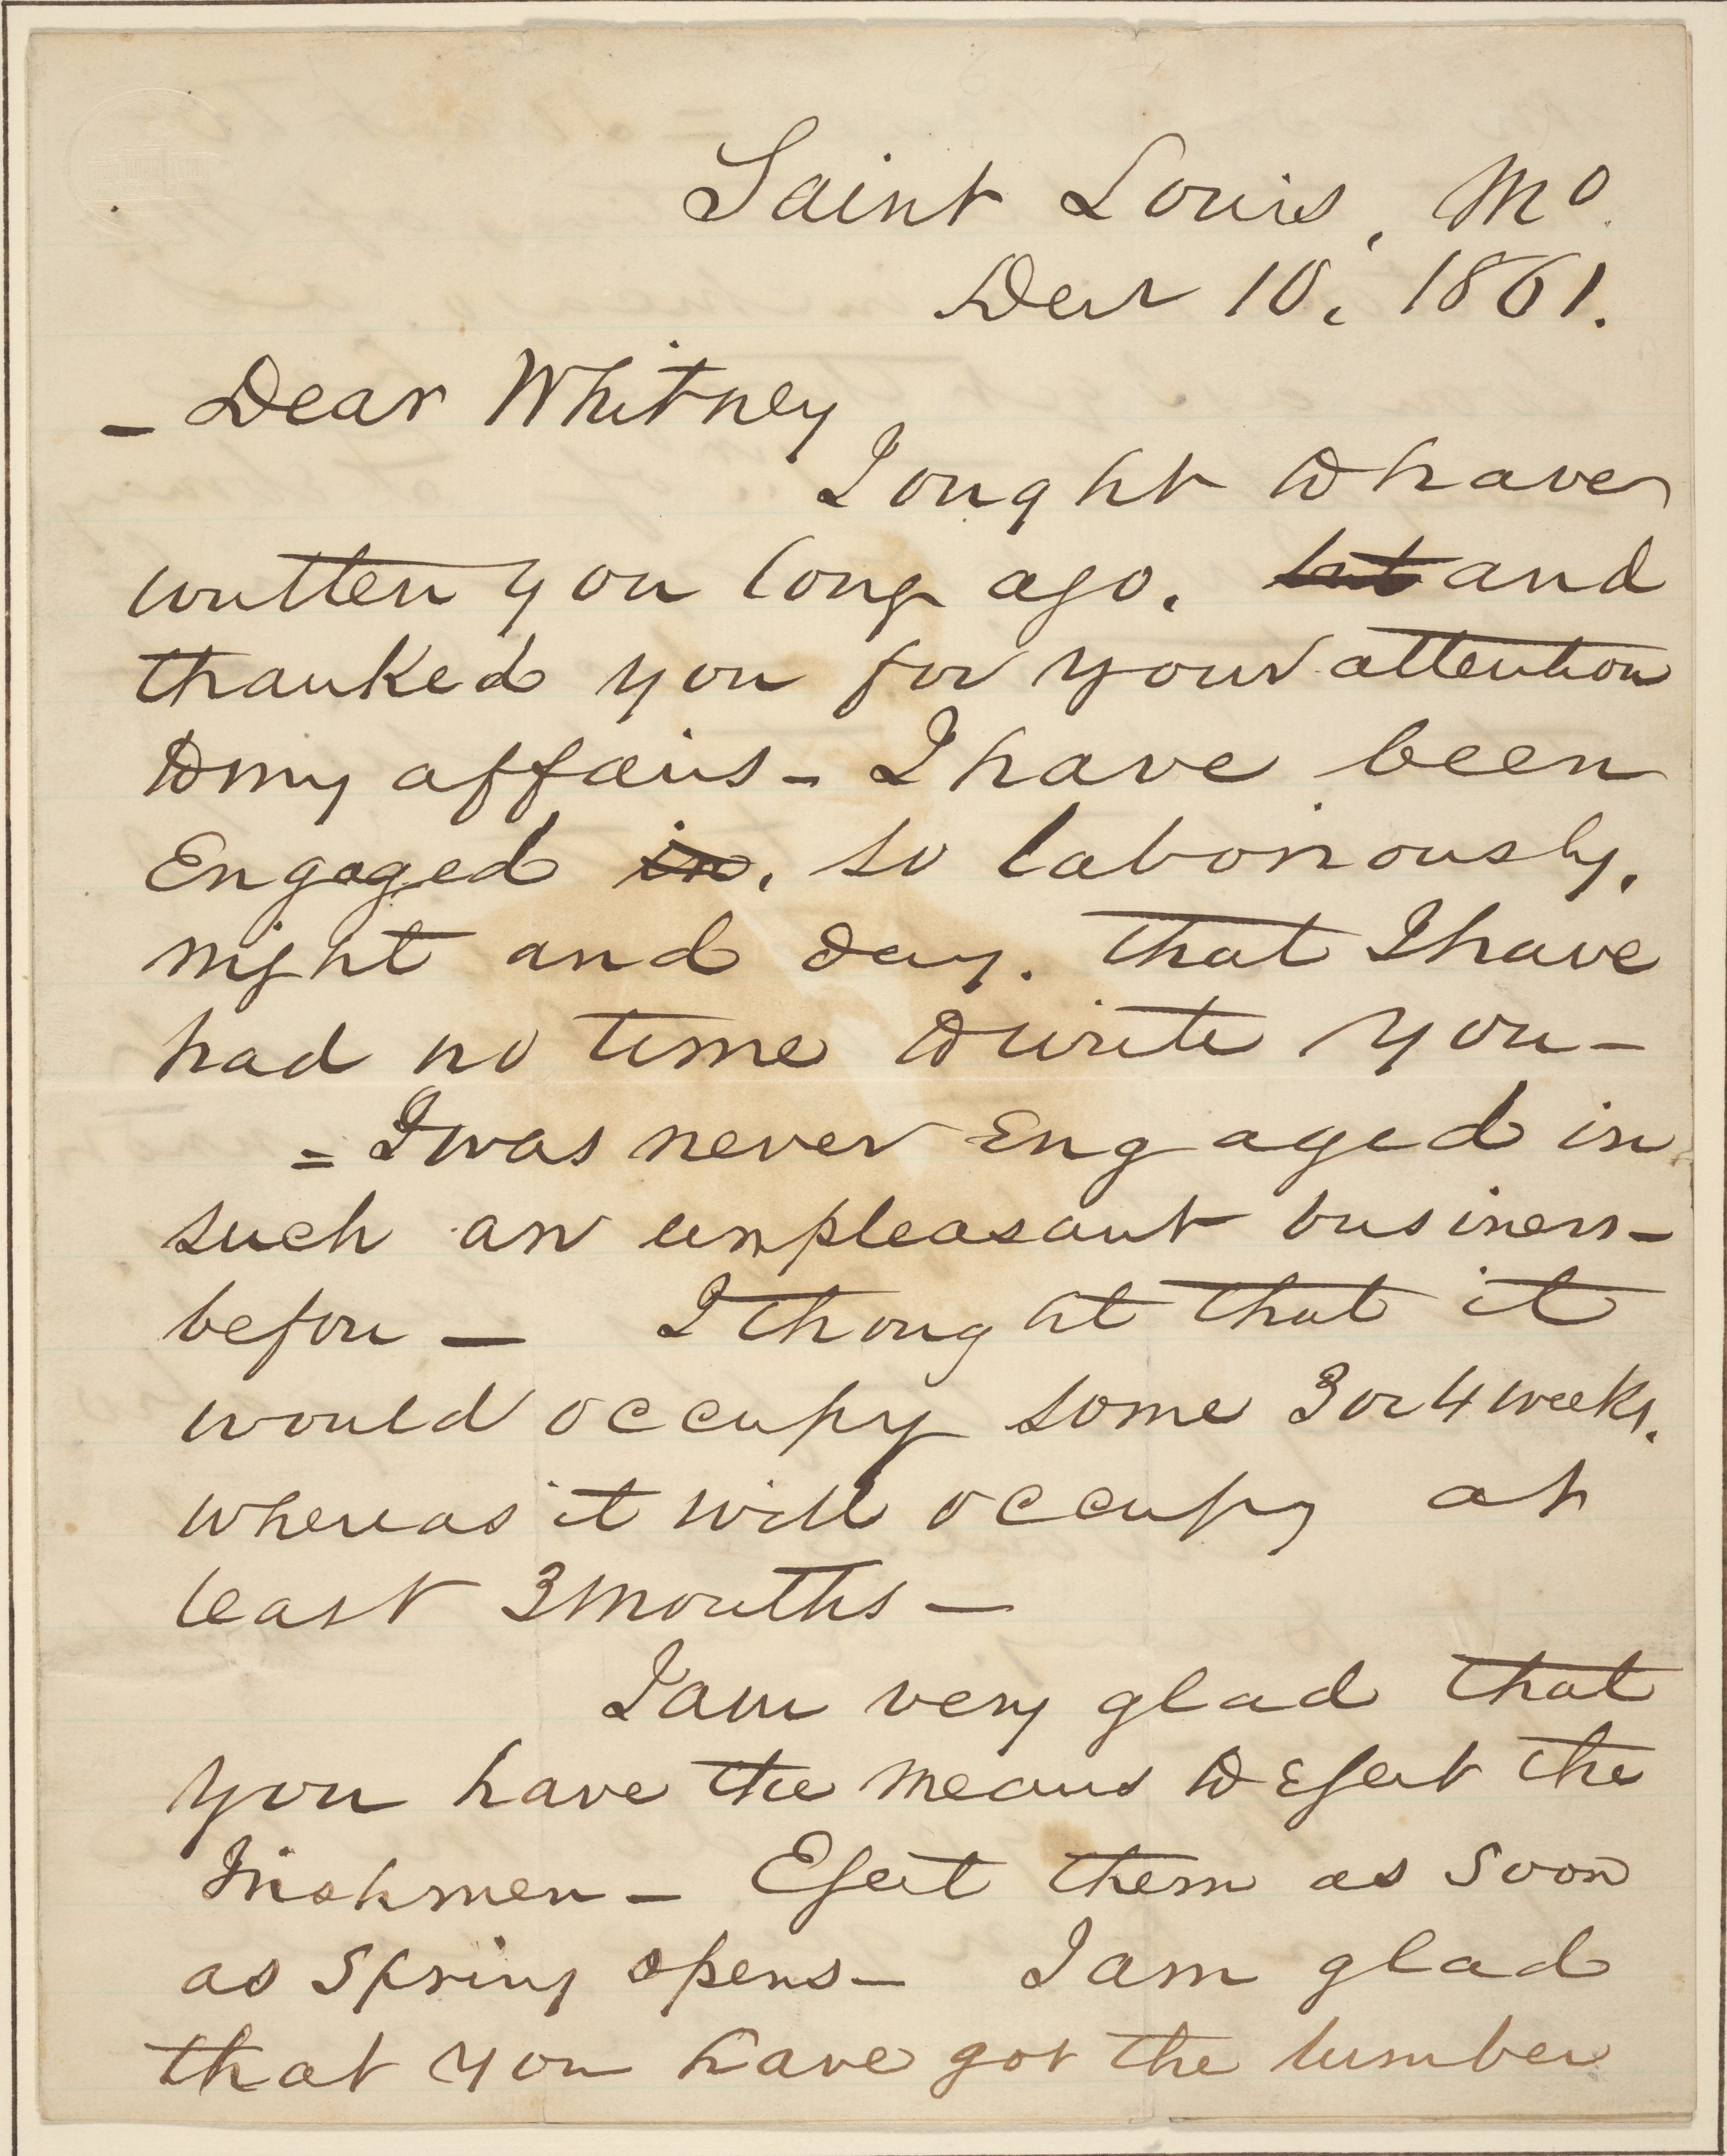 Saint Louis, Mo.
Decr 10, 1861.
- Dear Whitney
I ought to have
written you long ago. but and
thanked you for your attention
to my affairs - I have been
Engaged in, so laboriously,
night and day. that I have
had no time to write you -
= I was never Engaged in
such an unpleasant business -
before - I thought that it
would occupy some 3 or 4 weeks.
whereas it will occupy at
least 3 months -
I am very glad that
you have the means to Eject the
Irishmen - Eject them as soon
as Spring opens - I am glad
that you have got the lumber